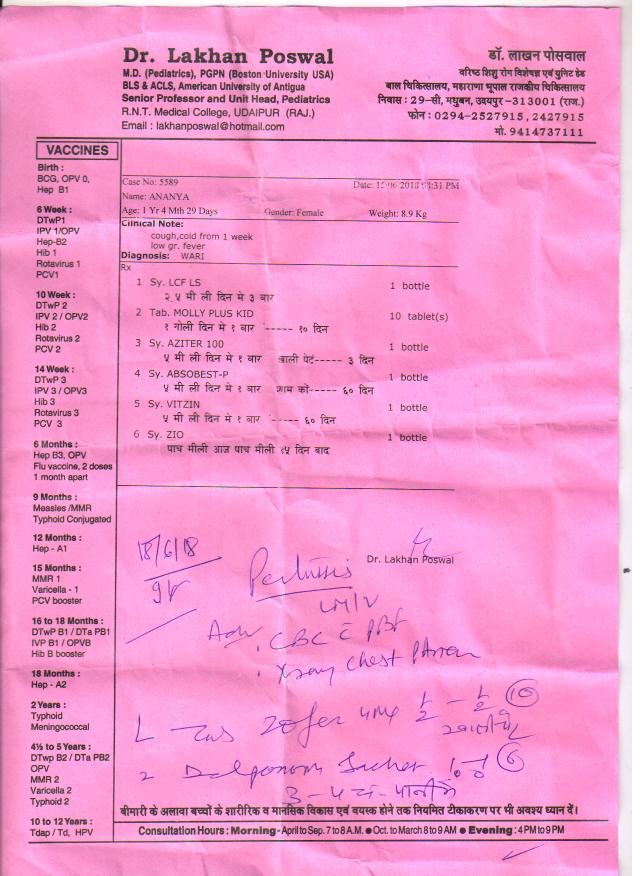 Dr. Lakhan Poswal
M.D. (Pediatrics), PGPN (Boston University USA)
BLS & ACLS, American University of Antigua
Senior Professor and Unit Head, Pediatrics
R.N.T. Medical College, UDAIPUR (RAJ.)
Email : lakhanposwal@hotmail.com
डॉ. लाखन पोसवाल
वरिष्ठ शिशु रोग विशेषज्ञ एवं युनिट हेड
बाल चिकित्सालय, महाराणा भूपाल राजकीय चिकित्सालय
निवास : 29-सी, मधुबन, उदयपुर-313001 (राज.)
फोन : 0294-2527915, 2427915
मो. 9414737111
VACCINES
Birth :
BCG, OPV 0,
Hep B1
6 Week :
DTwP1
IPV 1/OPV
Hep-B2
Hib 1
Rotavirus 1
PCV1
10 Week :
DTwP 2
IPV 2 / OPV2
Hib 2
Rotavirus 2
PCV 2
14 Week :
DTwP 3
IPV 3 / OPV3
Hib 3
Rotavirus 3
PCV 3
6 Months :
Hep B3, OPV
Flu vaccine, 2 doses
1 month apart
9 Months :
Measles /MMR
Typhoid Conjugated
12 Months :
Hep - A1
15 Months :
MMR 1
Varicella - 1
PCV booster
16 to 18 Months :
DTwP B1 / DTa PB1
IVP B1 / OPVB
Hib B booster
18 Months :
Hep - A2
2 Years :
Typhoid
Meningococcal
4½ to 5 Years :
DTwp B2 / DTa PB2
OPV
MMR 2
Varicella 2
Typhoid 2
10 to 12 Years :
Tdap / Td, HPV
Case No: 5589 Date: 2018 31 PM
Name: ANANYA
Age: 1 Yr 4 Mth 29 Days Gender: Female Weight: 8.9 Kg
Clinical Note:
cough,cold from 1 week
low gr. fever
Diagnosis: WARI
Rx
1 Sy. LCF LS 1 bottle
२.५ मी ली दिन मे ३ बार
2 Tab. MOLLY PLUS KID 10 tablet(s)
१ गोली दिन मे १ बार '----- १० दिन
3 Sy. AZITER 100 1 bottle
५ मी ली दिन मे १ बार खाली पेट----- ३ दिन
4 Sy. ABSOBEST-P 1 bottle
५ मी ली दिन मे १ बार शाम को----- ६० दिन
5 Sy. VITZIN 1 bottle
५ मी ली दिन मे १ बार '----- ६० दिन
6 Sy. ZIO 1 bottle
पाच मीली आज पाच मीली १५ दिन बाद
Dr. Lakhan Poswal
18/6/18
Pertussis
Adv CBC c PBF
Xray Chest PA view
Zofer 4mg ½ - ½ 10
2 Sachet 6
बीमारी के अलावा बच्चों के शारीरिक व मानसिक विकास एवं वयस्क होने तक नियमित टीकाकरण पर भी अवश्य ध्यान दें।
Consultation Hours : Morning - April to Sep. 7 to 8 A.M. ● Oct. to March 8 to 9 AM ● Evening : 4 PM to 9 PM